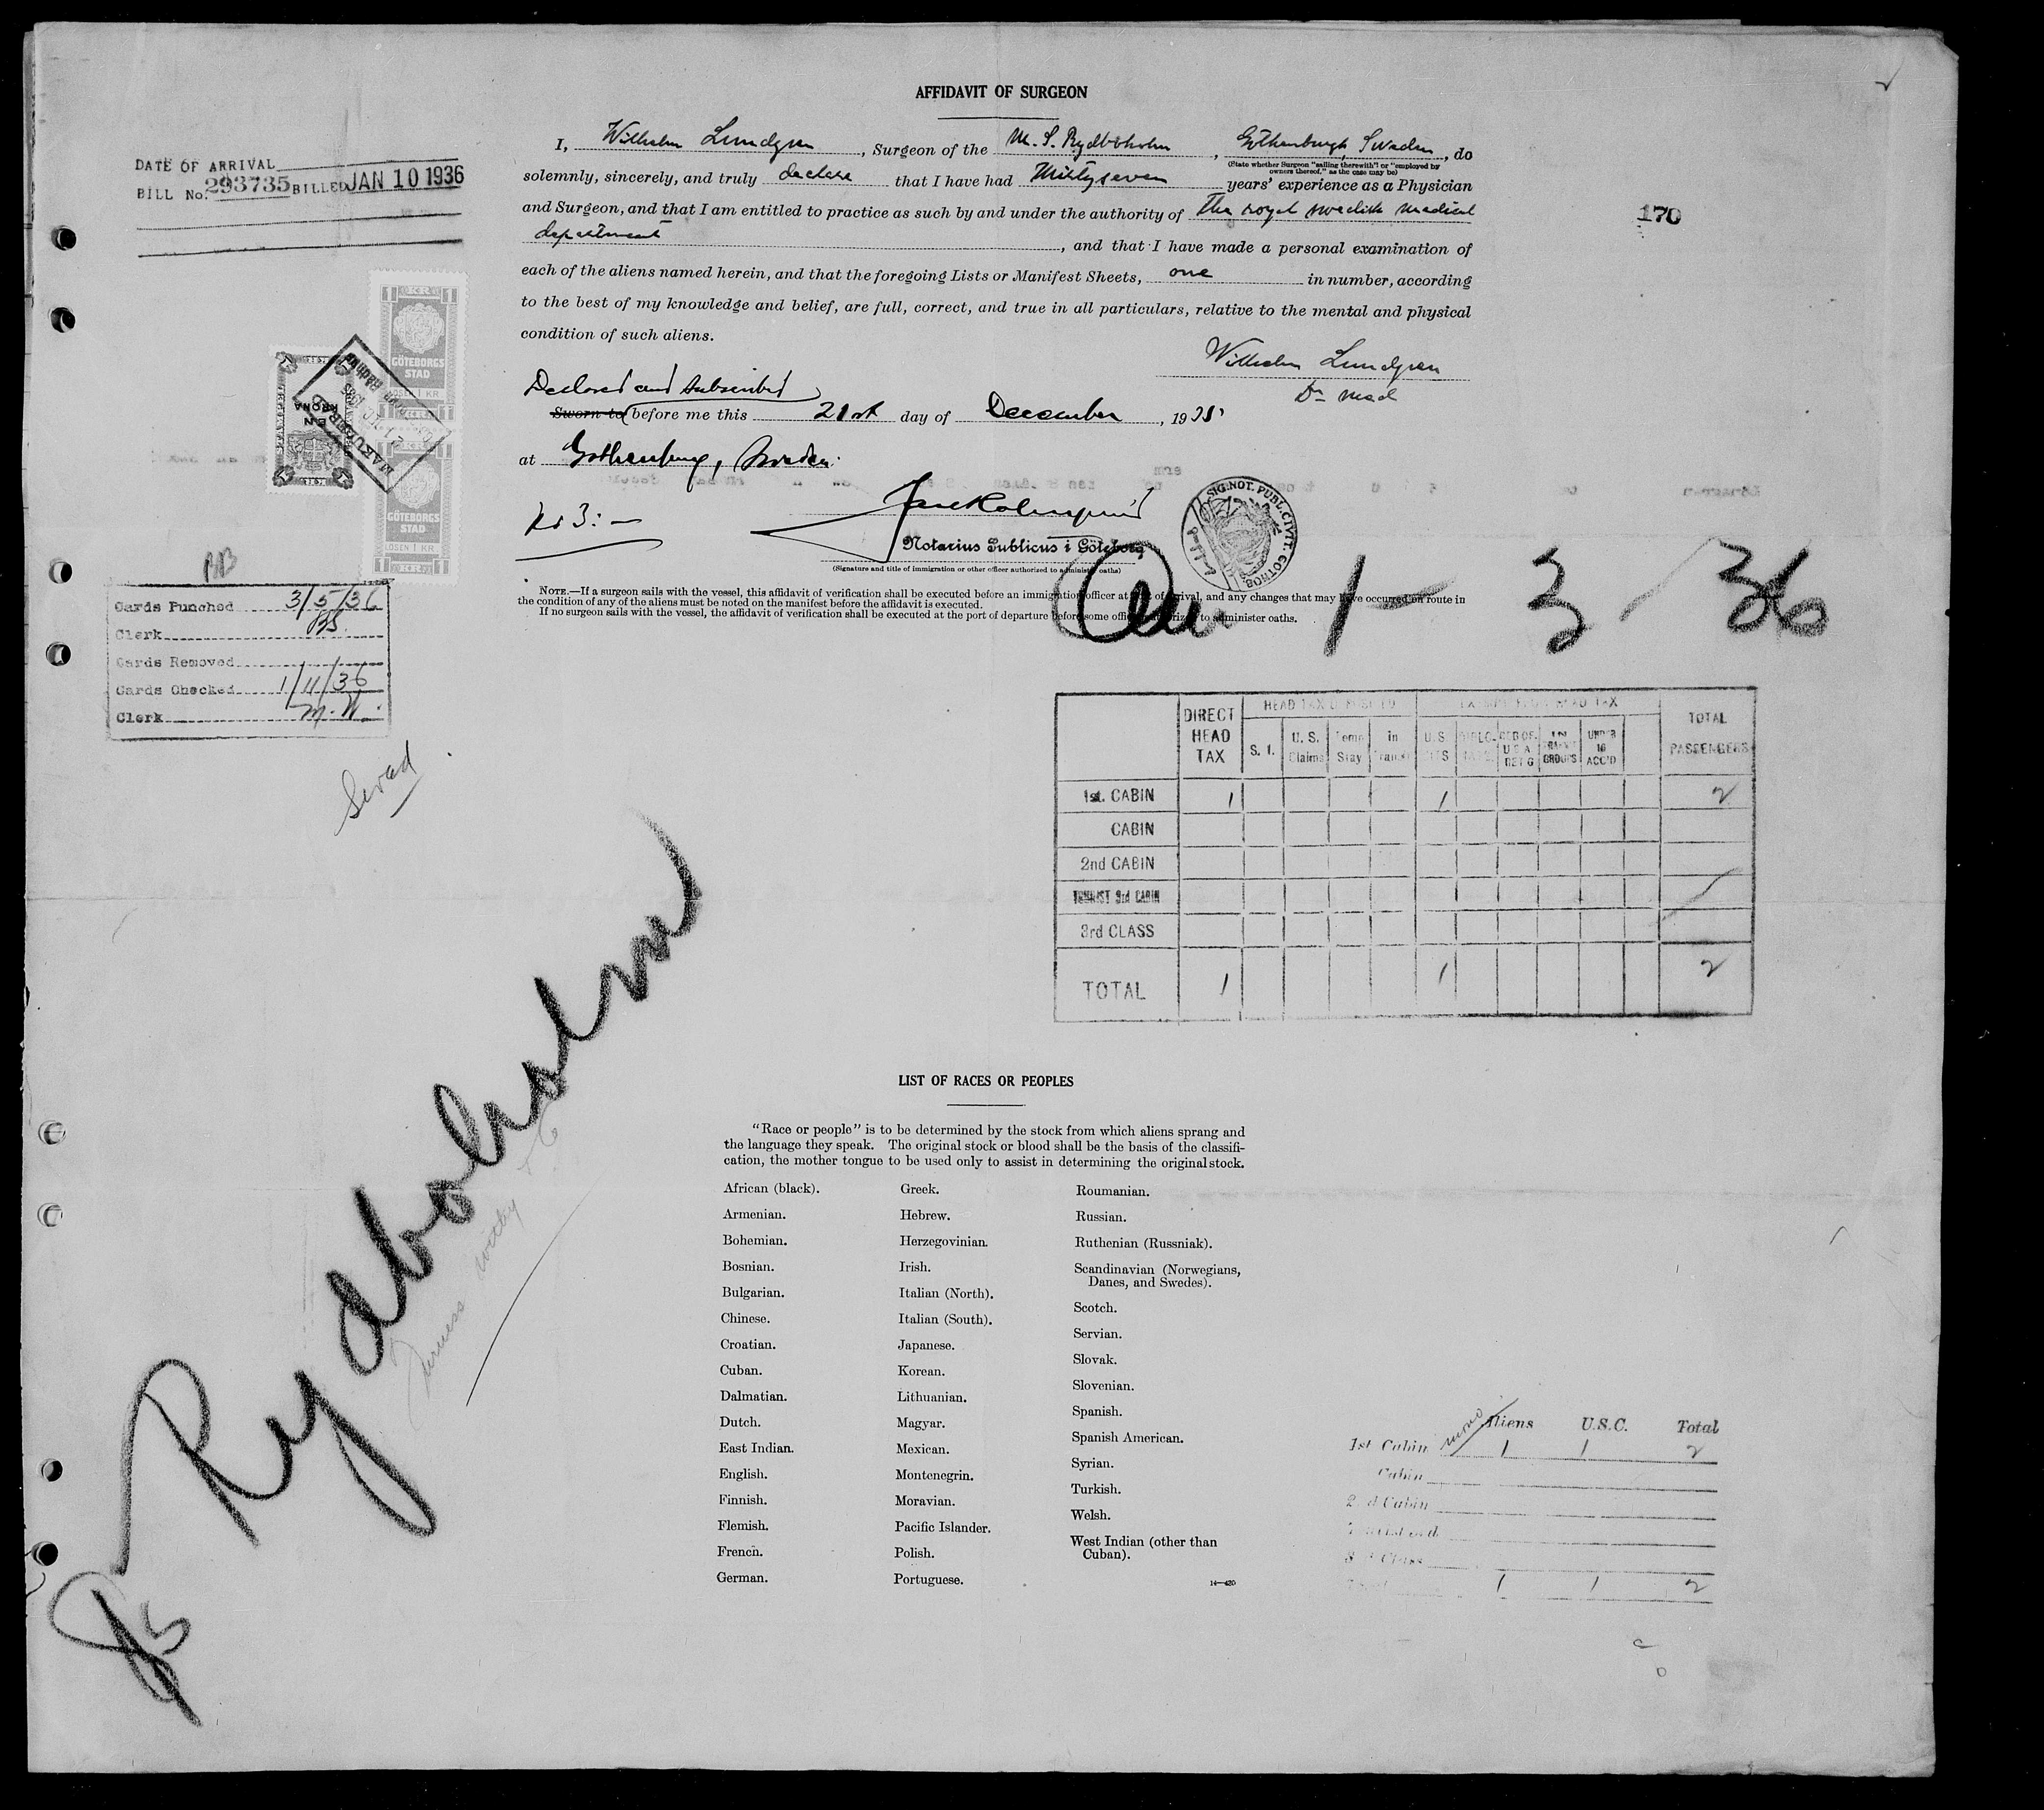 AFFIDAVIT OF SURGEON
I, Wilhelm Lundgren, Surgeon of the M. S. Rydboholm, Gothenburgh, Sweden, do
(State whether Surgeon "sailing therewith" or "employed by owners thereof," as the case may be)
solemnly, sincerely, and truly declare that I have had thirtyseven years' experience as a Physician
and Surgeon, and that I am entitled to practice as such by and under the authority of The royal swedish medical
department, and that I have made a personal examination of
each of the aliens named herein, and that the foregoing Lists or Manifest Sheets, one in number, according
to the best of my knowledge and belief, are full, correct, and true in all particulars, relative to the mental and physical
condition of such aliens.
Wilhelm Lundgren
Dr med
Declared and subscribed
Sworn to before me this 21st day of December, 1935
at Gothenburg, Sweden.
Kr 3:—
Notarius Publicus i Göteborg
(Signature and title of immigration or other officer authorized to administer oaths)
SIG. NOT. PUBL. CIVIT. GOTHOB
NOTE.—If a surgeon sails with the vessel, this affidavit of verification shall be executed before an immigration officer at port of arrival, and any changes that may have occurred en route in
the condition of any of the aliens must be noted on the manifest before the affidavit is executed.
If no surgeon sails with the vessel, the affidavit of verification shall be executed at the port of departure before some officer authorized to administer oaths.
1 - 3 - 36
DATE OF ARRIVAL
BILL No. 293735 BILLED JAN 10 1936
170
1 KR 1
GÖTEBORGS
STAD
LÖSEN 1 KR
EN
KRONA
MAKULERAS
GÖTEBORGS
STAD
LÖSEN 1 KR
BB
Cards Punched 3/5/36
Clerk BS
Cards Removed
Cards Checked 1/11/36
Clerk M. W.
Rydboholm
DIRECT HEAD TAX
HEAD TAX DEPOSITED
EXEMPT FROM HEAD TAX
TOTAL PASSENGERS
S. I.
U. S. Claims
Temp Stay
In Transit
U.S. CITS
UNDER 16 ACC'D
1st. CABIN 1 1 2
CABIN
2nd CABIN
TOURIST 3rd CABIN
3rd CLASS
TOTAL 1 1 2
LIST OF RACES OR PEOPLES
"Race or people" is to be determined by the stock from which aliens sprang and
the language they speak. The original stock or blood shall be the basis of the classifi-
cation, the mother tongue to be used only to assist in determining the original stock.
African (black).
Armenian.
Bohemian.
Bosnian.
Bulgarian.
Chinese.
Croatian.
Cuban.
Dalmatian.
Dutch.
East Indian.
English.
Finnish.
Flemish.
French.
German.
Greek.
Hebrew.
Herzegovinian.
Irish.
Italian (North).
Italian (South).
Japanese.
Korean.
Lithuanian.
Magyar.
Mexican.
Montenegrin.
Moravian.
Pacific Islander.
Polish.
Portuguese.
Roumanian.
Russian.
Ruthenian (Russniak).
Scandinavian (Norwegians,
Danes, and Swedes).
Scotch.
Servian.
Slovak.
Slovenian.
Spanish.
Spanish American.
Syrian.
Turkish.
Welsh.
West Indian (other than
Cuban).
14—420
Aliens U.S.C. Total
1st Cabin 1 1 2
Cabin
2nd Cabin
3rd Class
Total 1 1 2